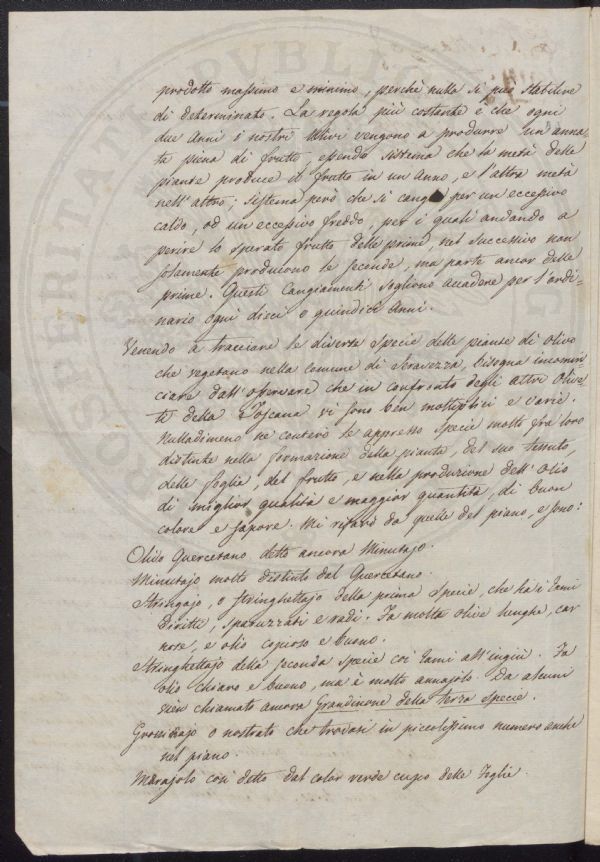 prodotto massimo e minimo, perchè nulla si può stabilire
di determinato. La regola più costante è che ogni
due anni i nostri Ulivi vengono a produrre un'anna
ta piena di frutto, essendo sistema che la metà delle
piante produce il frutto in un Anno, e l'altra metà
nell'altro; sistema però che si cangia per un eccessivo
caldo, od un eccessivo freddo, per i quali andando a
perire lo sperato frutto delle prime, nel successivo non
solamente producono le seconde, ma parte ancor delle
prime. Questi Cangiamenti sogliono accadere per l'ordi=
nario ogni dieci o quindici Anni.
Venendo a tracciare le diverse specie delle piante di olivo
che vegetano nella comune di Seravezza, bisogna incomin=
ciare dall'osservare che in confronto degli altri Olive
ti della Toscana vi sono ben moltiplici e varie.
Nulladimeno ne conterò le appresso specie molto fra loro
distinte nella formazione della pianta, del suo tessuto,
delle foglie, del frutto, e nella produzione dell'Olio
di miglior qualità e maggior quantità, di buon
colore e sapore. Mi rifarò da quelle del piano, e sono:
Olivo Quercetano detto ancora Minutajo.
Minutajo molto distinto dal Quercetano.
Stringajo, o stringhettajo della prima specie, che ha i rami
diritti, sparuzzati e radi. Fa molte olive lunghe, car
nose, e olio copioso e buono.
Stringhettajo della seconda specie coi rami all'ingiù. Fa
olio chiaro e buono, ma è molto annajolo. Da alcuni
vien chiamato ancora Grandinone della terza specie.
o nostrato che trovasi in piccolissimo numero anche
nel piano.
Morajolo così detto dal color verde cupo delle Foglie.